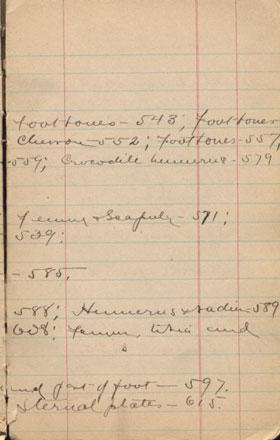 foot bones - 543; foot bones
Chevron - 552; foot bones - 557,
- 559; Crocodile humerus - 579
Femur & Scapula - 571;
539;
- 585,
588; Humerus & radius - 589
608; femur, tibia and
part of foot - 597.
sternal plates - 615.